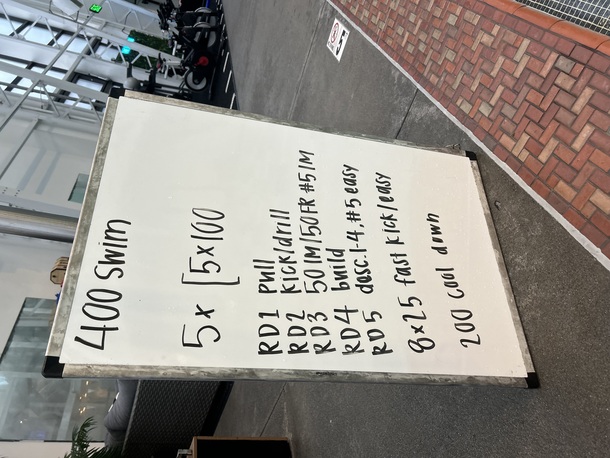 400 Swim
5x [5x100
RD1 pull
RD2 kick/drill
RD3 50IM/50FR #5IM
RD4 build
RD5 desc.1-4,#5 easy
8x25 fast kick/easy
200 cool down